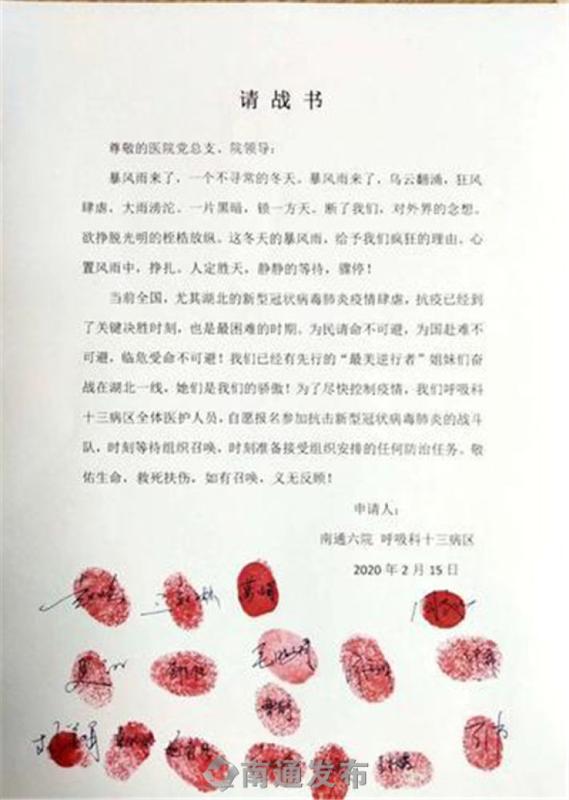 请战书
尊敬的医院党总支、院领导：
暴风雨来了，一个不寻常的冬天。暴风雨来了，乌云翻涌，狂风
肆虐，大雨滂沱。一片黑暗，锁一方天。断了我们，对外界的念想。
欲挣脱光明的桎梏放纵。这冬天的暴风雨，给予我们疯狂的理由。心
置风雨中，挣扎。人定胜天，静静的等待，骤停！
当前全国，尤其湖北的新型冠状病毒肺炎疫情肆虐，抗疫已经到
了关键决胜时刻，也是最困难的时期。为民请命不可避，为国赴难不
可避，临危受命不可避！我们已经有先行的“最美逆行者”姐妹们奋
战在湖北一线，她们是我们的骄傲！为了尽快控制疫情，我们呼吸科
十三病区全体医护人员，自愿报名参加抗击新型冠状病毒肺炎的战斗
队，时刻等待组织召唤，时刻准备接受组织安排的任何防治任务。敬
佑生命，救死扶伤，如有召唤，义无反顾！
申请人：
南通六院 呼吸科十三病区
2020 年 2 月 15 日
南通发布